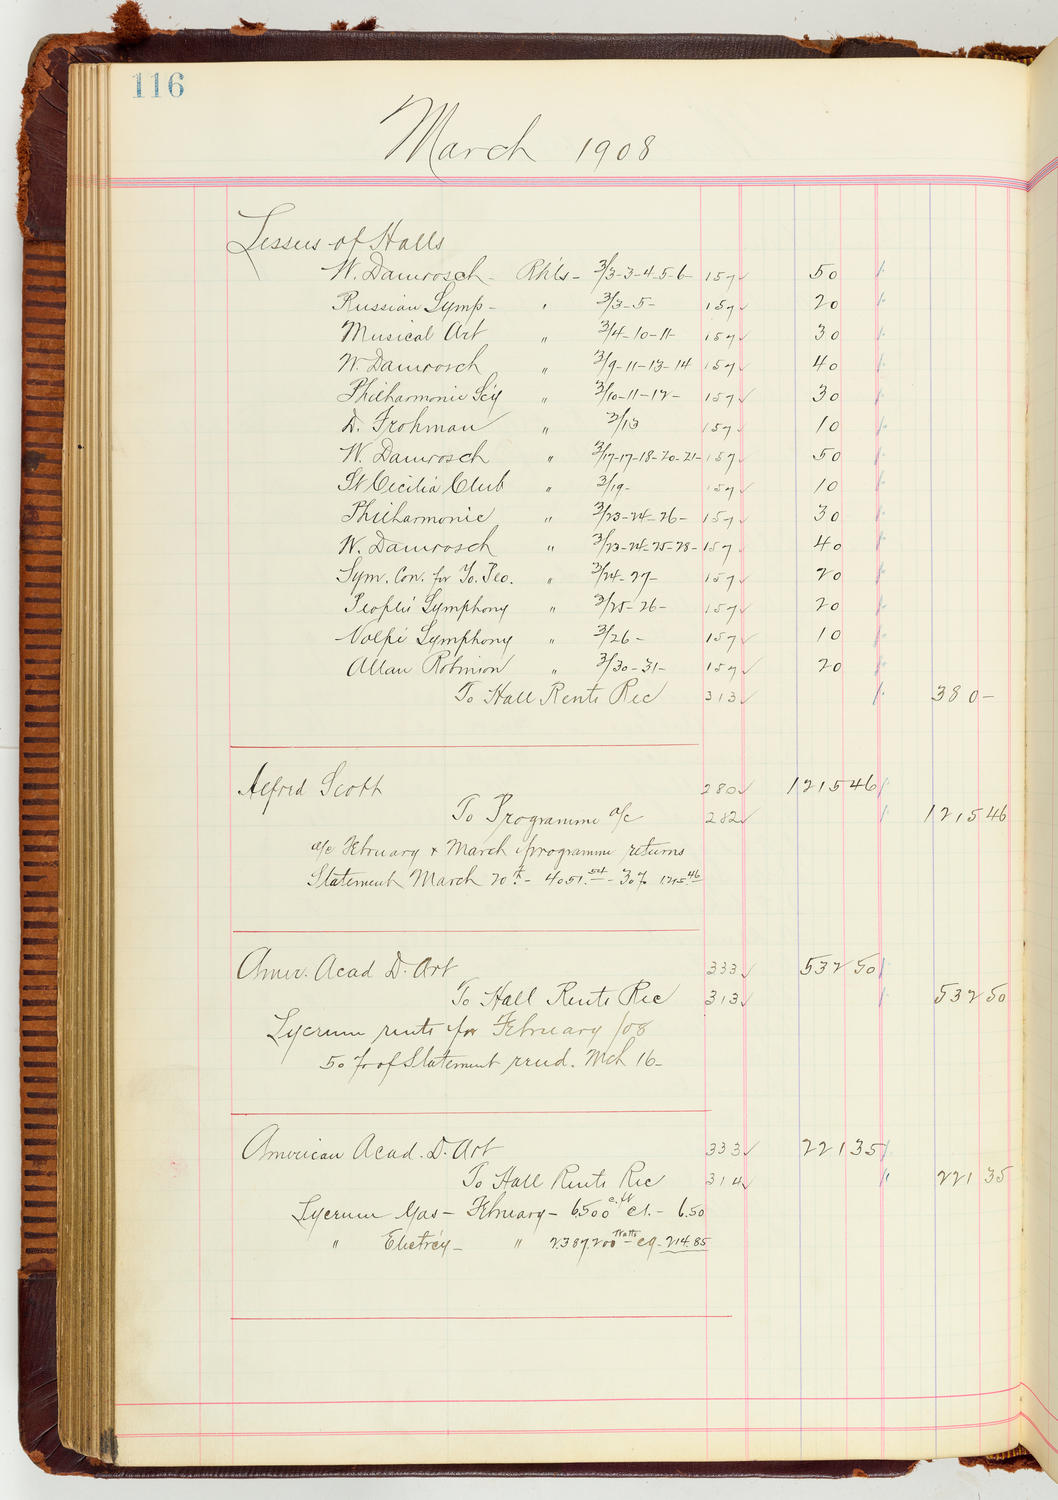 116
March 1908
Lessees of Halls
W. Damrosch - Rh'ls - 3/3-3-4-5-6- 157 ✓ 50
Russian Symp - " 3/3-5- 157 ✓ 20
Musical Art " 3/4-10-11- 157 ✓ 30
W. Damrosch " 3/9-11-13-14 157 ✓ 40
Philharmonic Sc'y " 3/10-11-12- 157 ✓ 30
D. Frohman " 3/13 157 ✓ 10
W. Damrosch " 3/17-17-18-20-21- 157 ✓ 50
St Cecilia Club " 3/19- 157 ✓ 10
Philharmonic " 3/23-24-26- 157 ✓ 30
W. Damrosch " 3/23-24-25-28- 157 ✓ 40
Sym. Con. for Yo. Peo. " 3/24-27- 157 ✓ 20
Peoples Symphony " 3/25-26- 157 ✓ 20
Volpe Symphony " 3/26- 157 ✓ 10
Allan Robinson " 3/30-31- 157 ✓ 20
To Hall Rents Rec 313 ✓ 380-
Alfred Scott 280 ✓ 1215 46
To Programme a/c 282 ✓ 1215 46
a/c February & March programme returns
Statement March 20th - 4051.54 - 30% 1215.46
Amer. Acad D. Art 333 ✓ 532 50
To Hall Rents Rec 313 ✓ 532 50
Lyceum rents for February /08
50% of Statement rend. Mch 16-
American Acad. D. Art 333 ✓ 221 35
To Hall Rents Rec 314 ✓ 221 35
Lyceum Gas - February - 6500 c.ft c1. - 6.50
" Electrcy - " 2387.200 Watts - c9 - 214.85